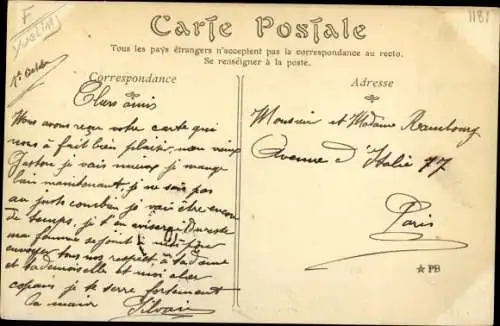 Carte Postale
Tous les pays étrangers n'acceptent pas la correspondance au recto.
Se renseigner à la poste.
Correspondance
Adresse
F
1181
Chers amis
Nous avons reçu votre carte qui
nous a fait bien plaisir, mon vieux
Gaston je vais mieux je mange
bien maintenant, je ne sais pas
au juste combien je vais être encore
de temps, je t'en aviserai Du reste
ma femme se joint à moi pour
envoyer tous nos respects à Madame
et Mademoiselle et moi cher
copain je te serre fortement
la main Silvain
Monsieur et Madame
Avenue d'Italie 77
Paris
PB